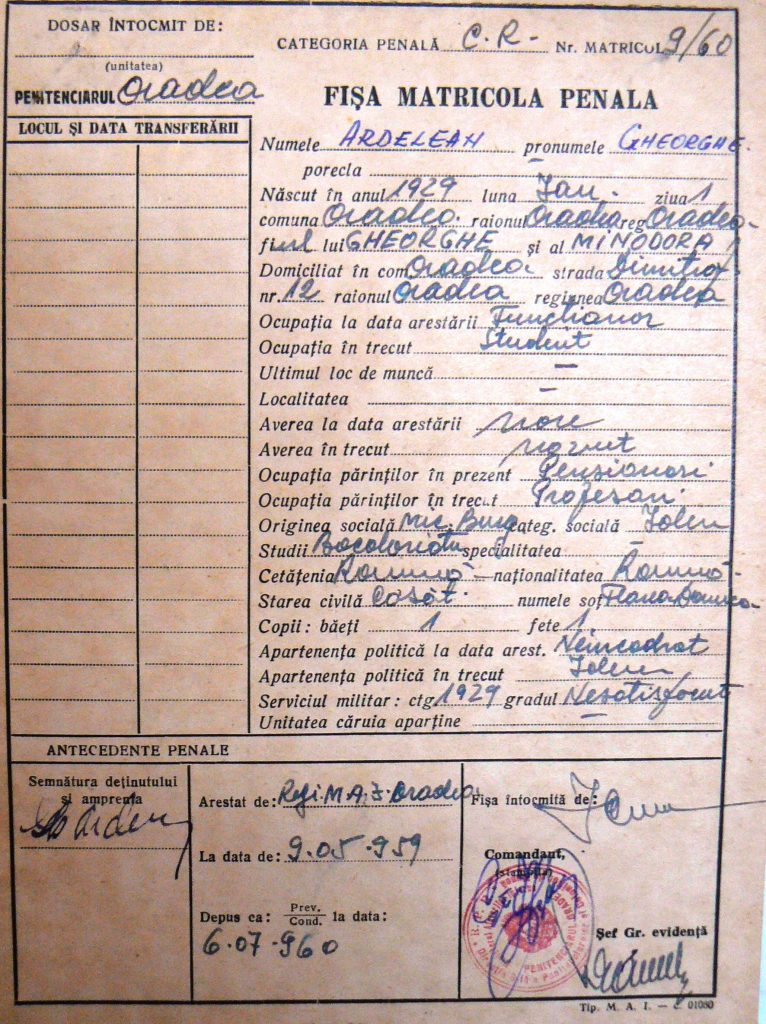 DOSAR ÎNTOCMIT DE:
(unitatea)
PENITENCIARUL Oradea
CATEGORIA PENALĂ C.R- Nr. MATRICOL 9/60
FIȘA MATRICOLA PENALA
LOCUL ȘI DATA TRANSFERĂRII
Numele ARDELEAN pronumele GHEORGHE.
porecla —
Născut în anul 1929 luna Ian. ziua 1
comuna Oradea. raionul Oradea reg Oradea.
fiul lui GHEORGHE și al MINODORA
Domiciliat în com Oradea strada
nr. 12 raionul Oradea regiunea Oradea
Ocupația la data arestării Funcționar
Ocupația în trecut Student
Ultimul loc de muncă —
Localitatea —
Averea la data arestării n-are
Averea în trecut n-a avut
Ocupația părinților în prezent Pensionari
Ocupația părinților în trecut Profesori
Originea socială mic. Burg categ. socială Idem
Studii Bacaloriat specialitatea —
Cetățenia Romînă — naționalitatea Romînă.
Starea civilă Casat. numele soț
Copii: băeți 1 fete 1
Apartenența politică la data arest. Neincadrat
Apartenența politică în trecut Idem
Serviciul militar: ctg 1929 gradul Nesatisfacut
Unitatea căruia aparține —
ANTECEDENTE PENALE
Semnătura deținutului
și amprenta
Arestat de: Reg. M.A.I. Oradea
La data de: 9.05.959
Depus ca: Prev. Cond. la data:
6.07.960
Fișa întocmită de:
Comandant,
(stampila)
PENITENCIARUL
Șef Gr. evidență
Tip. M. A. I. — c. 01080